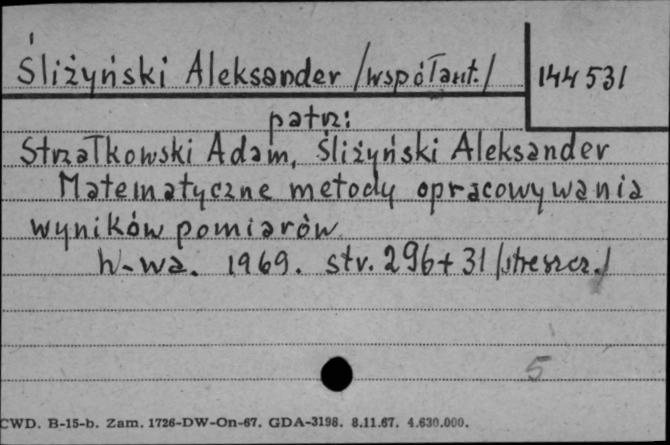 Śliżyński Aleksander /współaut./ 144 531
patrz:
Strzałkowski Adam, Śliżyński Aleksander
Matematyczne metody opracowywania
wyników pomiarów
W-wa. 1969. str. 296+31 /streszcz./
5
CWD. B-15-b. Zam. 1726-DW-On-67. GDA-3198. 8.11.67. 4.630.000.